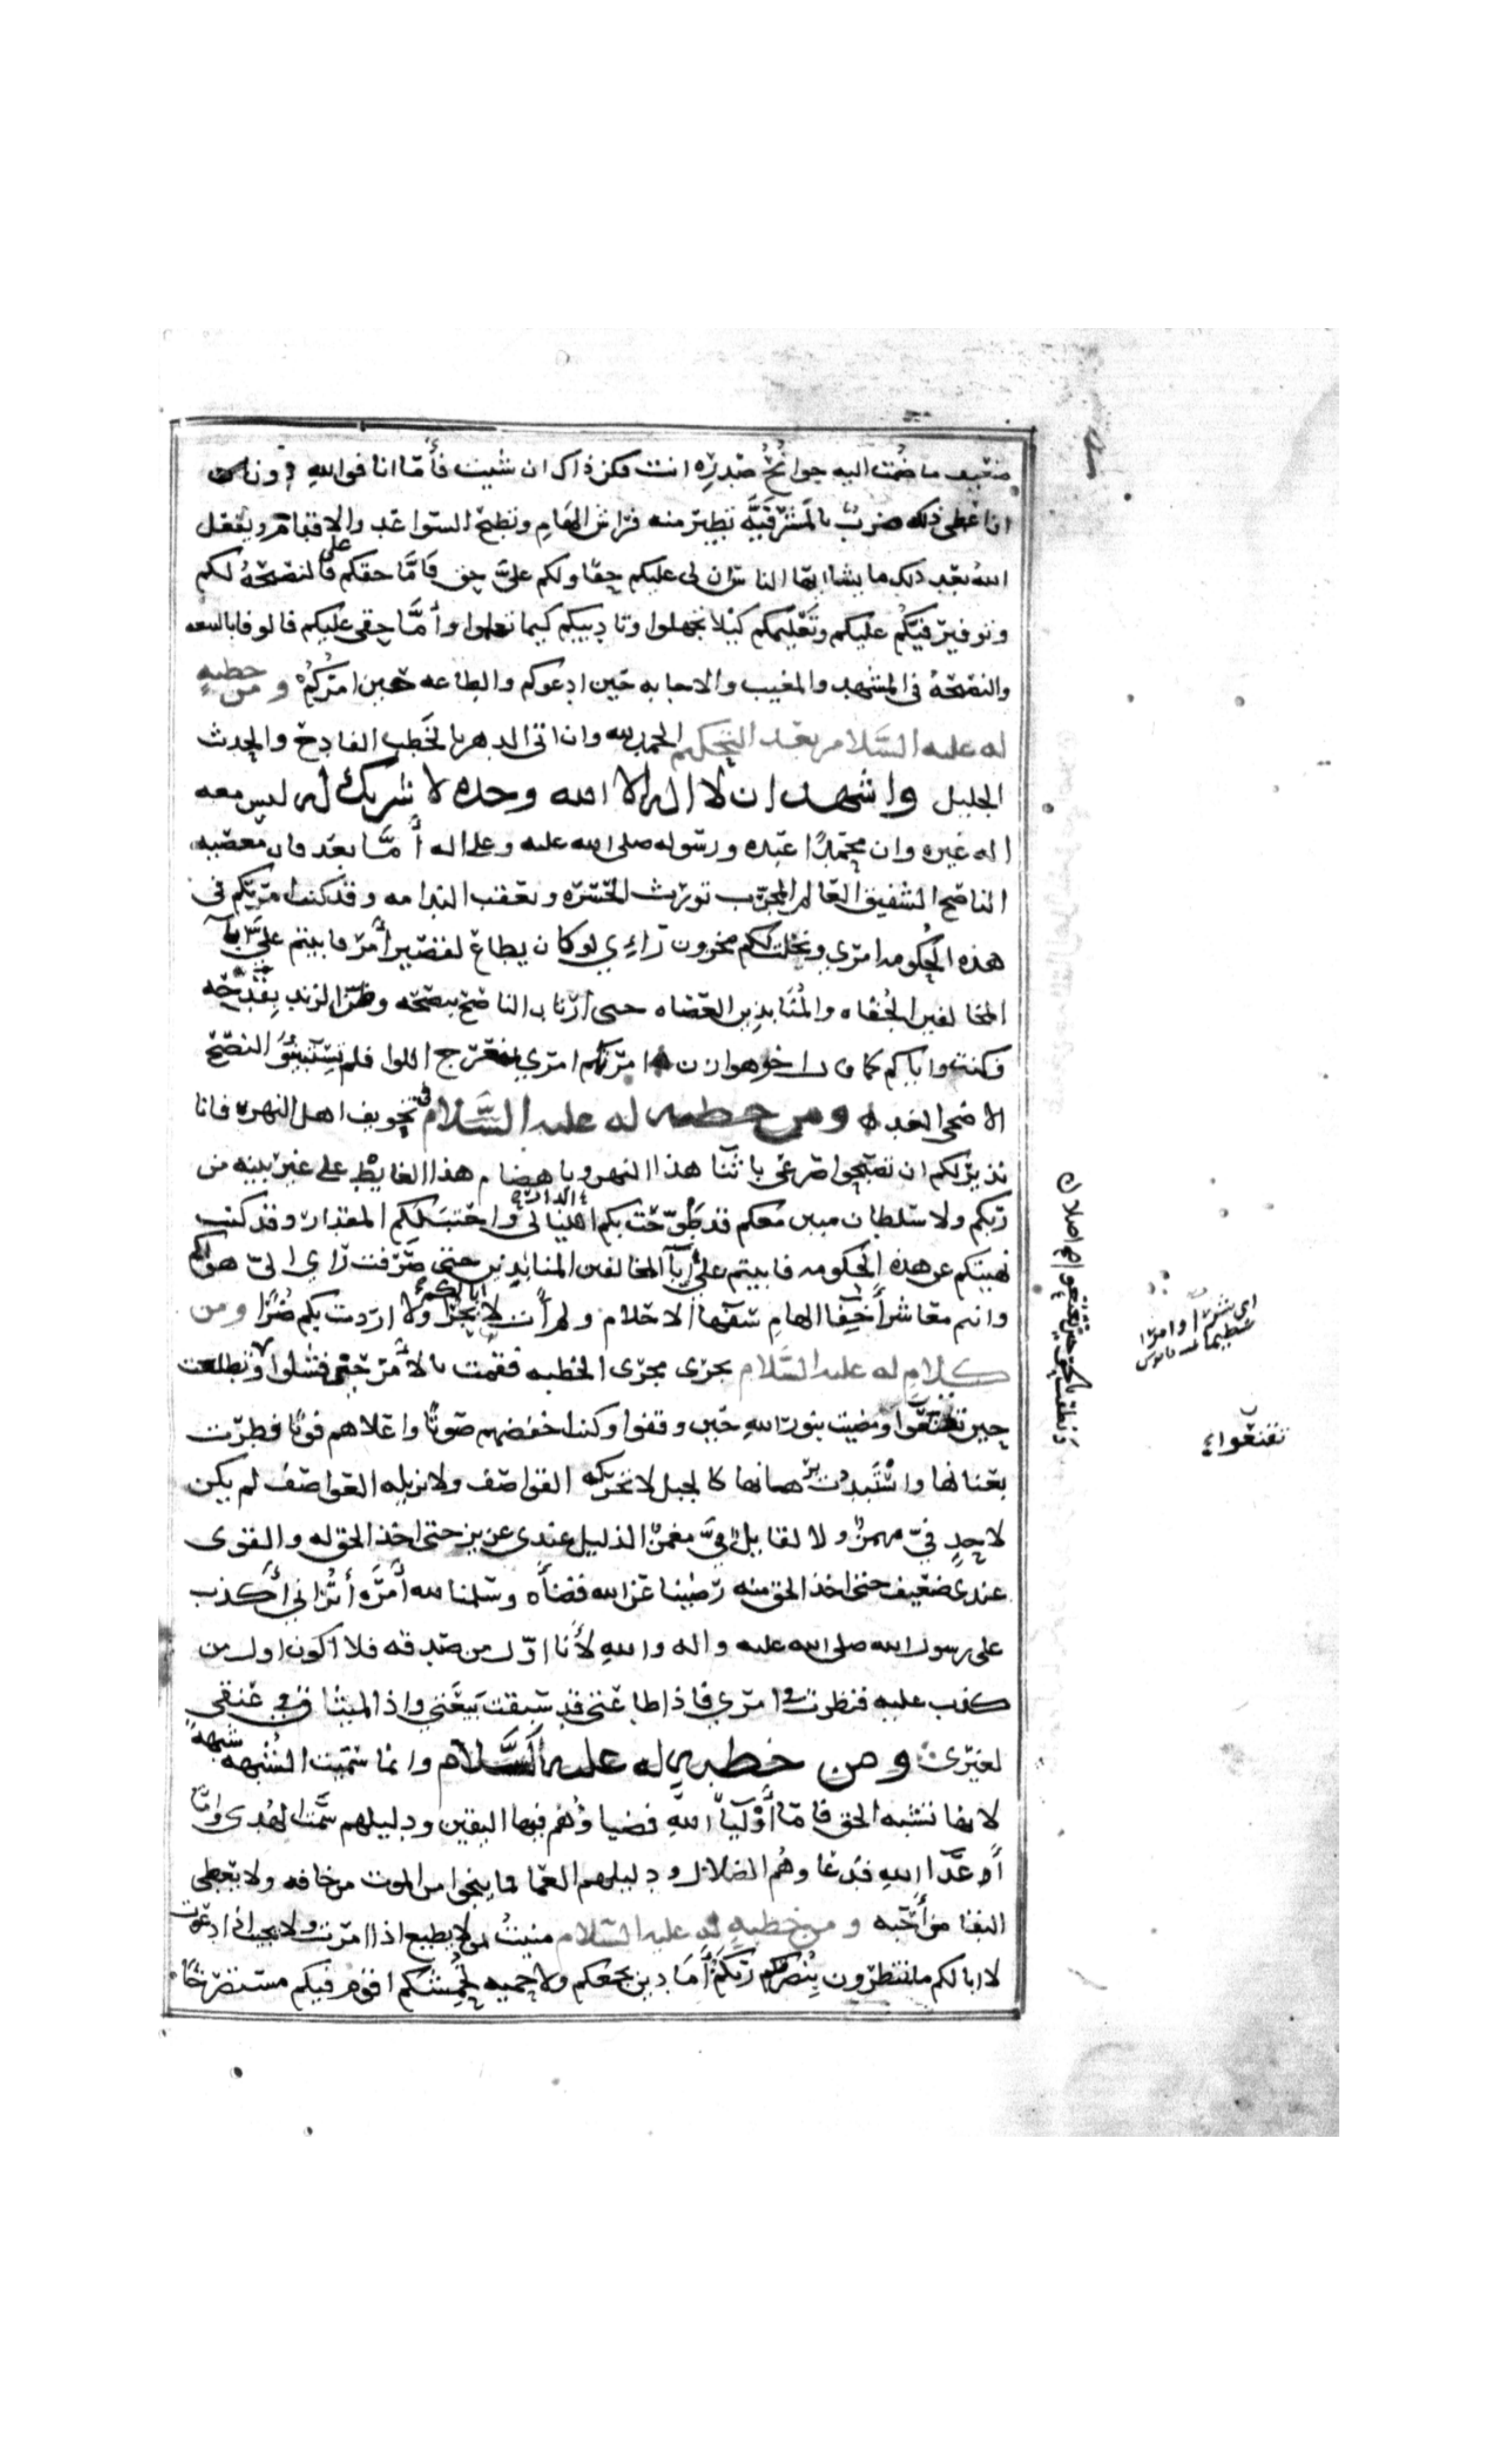 ضعيف ما ضُمت اليه جوانحُ صدره انت فكن ذاك ان شيت فأمّا انا فوالله دون ان
اعطى ذلك ضربٌ بالمَشرَفيَّه تطير منه فراش الهام وتطيح السواعد والاقدام ويفعل
الله بعد ذلك ما يشا ايها الناس ان لى عليكم حقا ولكم علىَّ حق فامَّا حقكم على فالنصيحةُ لكم
وتوفير فيئكم عليكم وتعليمكم كيلا تجهلوا وتاديبكم كيما تعلموا وأمَّا حقى عليكم فالوفا بالبيعه
والنصيحةُ فى المشهد والمغيب والاجابه حين ادعوكم والطاعه حين امركم ومن خطبهٍ
له عليه السَّلام بعد التحكيم الحمد لله وان اتى الدهر بالخَطب الفادح والحدث
الجليل واشهد ان لا اله الا الله وحده لا شريك له ليس معه
اله غيره وان محمّدًا عبده ورسوله صلى الله عليه وعلى اله أمَّا بعد فان معصيه
الناصح الشفيق العالم المجرّب تورث الحسره وتعقب الندامه وقد كنت امرتكم فى
هذه الحُكومه امرى ونخلت لكم مخزون رأى لو كان يطاع لقصير أمر فابيتم علىَّ ابآ
المخالفين الجُفاه والمُنابذين العصاه حتى ارتاب الناصح بنصحه وضن الزند بقدحه
فكنت واياكم كما قال اخو هوازن امرتكم امرى بمنعرج اللوا فلم تستبينُوا النصح
الا ضحى الغد ومن خطبه له عليه السَّلام فى تخويف اهل النهر فانا
نذير لكم ان تصبحوا صرعى باثنآ هذا النهر وباهضام هذا الغايط على غير بينه من
ربكم ولا سلطان مبين معكم قد طوّحت بكم الدار واحتبَلَكم المقدار وقد كنت
نهيتكم عن هذه الحكومه فابيتم علىَّ ابآ المخالفين المنابذين حتى صرفت رأى الى هواكم
وانتم معاشر أخِفّا الهام سفهآ الاحلام ولم آت لا ابالكم بجرا ولا اردت بكم ضُرًّا ومن
كلام له عليه السَّلام يجرى مجرى الخطبه فقمت بالأمر حين فشلوا وتطلعت
حين تقبعوا ومضيت بنور الله حين وقفوا وكنت اخفضهم صوتًا واعلاهم فوتًا فطرت
بعنانها واسْتَبددت برهانها كالجبل لا تحركه القواصف ولا تزيله العواصف لم يكن
لاحدٍ فىّ مهمز ولا لقايل فىَّ مغمز الذليل عندى عزيز حتى اخذ الحق له والقوى
عندى ضعيف حتى اخذ الحق منه رضينا عن الله قضآه وسلمنا لله أمره أتُرانى أكذب
على رسول الله صلى الله عليه واله والله لأنا اوّل من صدقه فلا اكون اول من
كذب عليه فنظرت فى امرى فاذا طاعتى قد سبقت بَيعَتى واذا الميثاق فى عنقى
لغيرى ومن خطبهٍ له عليه السَّلام وانما سميت الشُبهه شبههً
لانها تشبه الحق فامّا أوليآ اللهِ فضياؤهم فيها اليقين ودليلهم سَمْت الهُدى وامّا
أعدآ اللهِ فدعاوهُم الضلال ودليلهم العمى فما ينجوا من الموت من خافه ولا يعطى
البقا من أحبه ومن خطبهٍ له عليه السلام منيتُ بمن لا يطيع اذا امرت ولا يجيب اذا دعوت
لا ابا لكم ما تنتظرون بنصركم ربَّكم أمَا دين يجمعكم ولا حميه تُحمشكم اقوم فيكم مستصرخًا
ونطقت حين تقبعوا
اى شرّا وامرًا
عظيما قاموس
تقبعوا